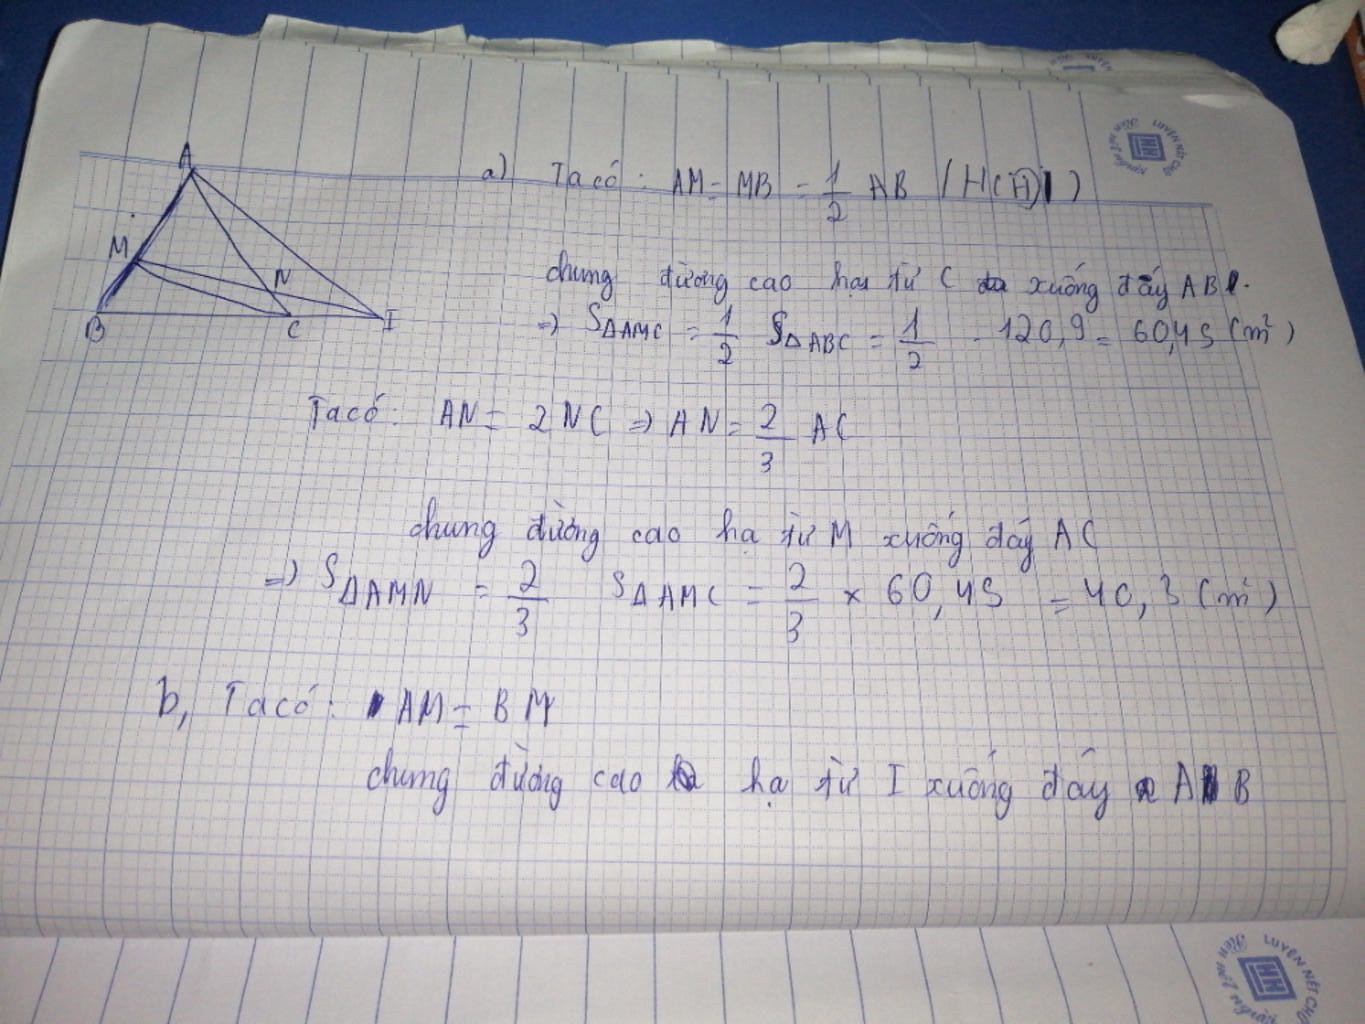 A
M
N
B
C
I
a) Ta có: AM = MB = 1/2 AB
chung đường cao hạ từ C xuống đấy AB.
=> SΔAMC = 1/2 SΔABC = 1/2 . 120,9 = 60,45 (m²)
Ta có: AN = 2NC => AN = 2/3 AC
chung đường cao hạ từ M xuống đấy AC
=> SΔAMN = 2/3 SΔAMC = 2/3 × 60,45 = 40,3 (m²)
b, Ta có: AM = BM
chung đường cao hạ từ I xuống đấy AB
LUYỆN NÉT CHỮ
LUYỆN NÉT CHỮ